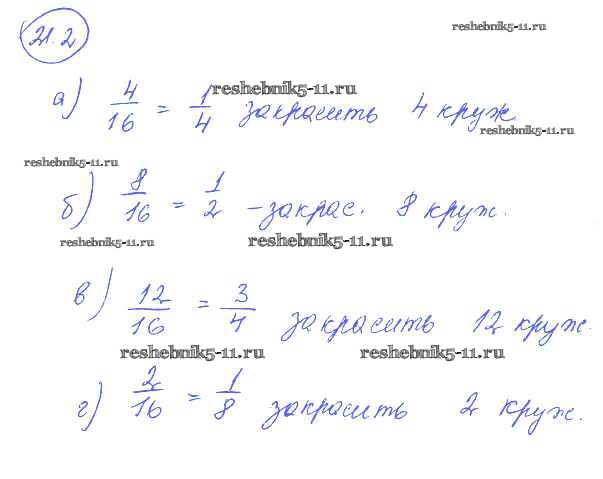 21.2
reshebnik5-11.ru
а) 4/16 = 1/4 закрасить 4 круж
reshebnik5-11.ru
reshebnik5-11.ru
reshebnik5-11.ru
б) 8/16 = 1/2 - закрас. 8 круж.
reshebnik5-11.ru
reshebnik5-11.ru
в) 12/16 = 3/4 закрасить 12 круж.
reshebnik5-11.ru
reshebnik5-11.ru
г) 2/16 = 1/8 закрасить 2 круж.